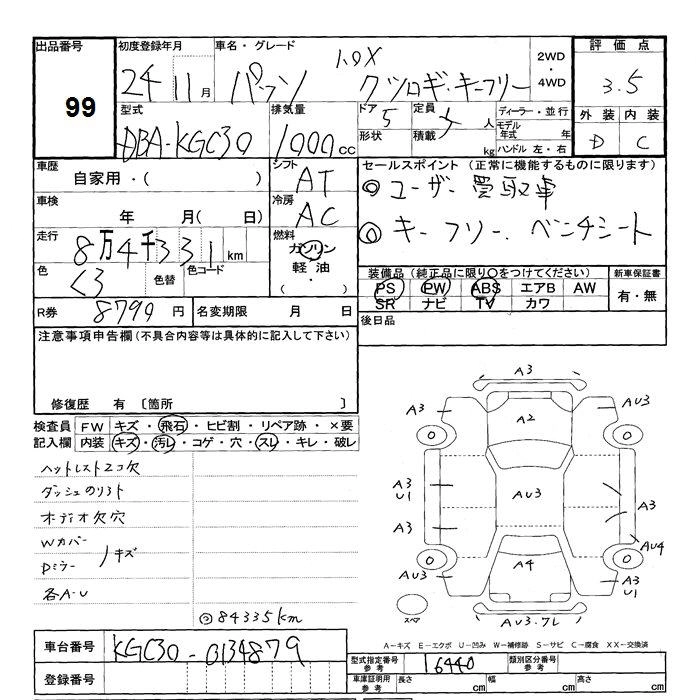 出品番号 初度登録年月 車名・グレード 1.0X 2WD・4WD 評価点
99 24 11月 パッソ クツロギ・キーフリー 3.5
型式 排気量 ドア 5 定員 人 ディーラー・並行 外装 内装
DBA-KGC30 1000cc 形状 積載 kg モデル年式 年 ハンドル 左・右 D C
車歴 シフト セールスポイント (正常に機能するものに限ります)
自家用・( ) AT ◎ユーザー買取車
車検 年 月( 日) 冷房 AC ◎キーフリー、ベンチシート
走行 8万4千331km 燃料 ガソリン・軽油・( )
色 色替 色コード 装備品(純正品に限り○をつけてください) 新車保証書
PS PW ABS エアB AW 有・無
SR ナビ TV カワ
R券 8790円 名変期限 月 日 後日品
注意事項申告欄(不具合内容等は具体的に記入して下さい)
修復歴 有 〔箇所 〕
検査員 FW キズ・飛石・ヒビ割・リペア跡・×要
記入欄 内装 キズ・汚レ・コゲ・穴・スレ・キレ・破レ
ヘットレスト2コ欠
ダッシュのリフト
オーディオ欠穴
Wカバー
Dミラー キズ
各A-U
◎84335km
A3
A3 A2 AU3
A3 U1 AU3 A3
A3 AU4
AU3 A4 A3 U1
スペア AU3.7L
A-キズ E-エクボ U-凹み W-補修跡 S-サビ C-腐食 XX-交換済
車台番号 KGC30-0134879
型式指定番号 参考 16440 類別区分番号 参考
登録番号 車庫証明用 参考 長さ cm 幅 cm 高さ cm